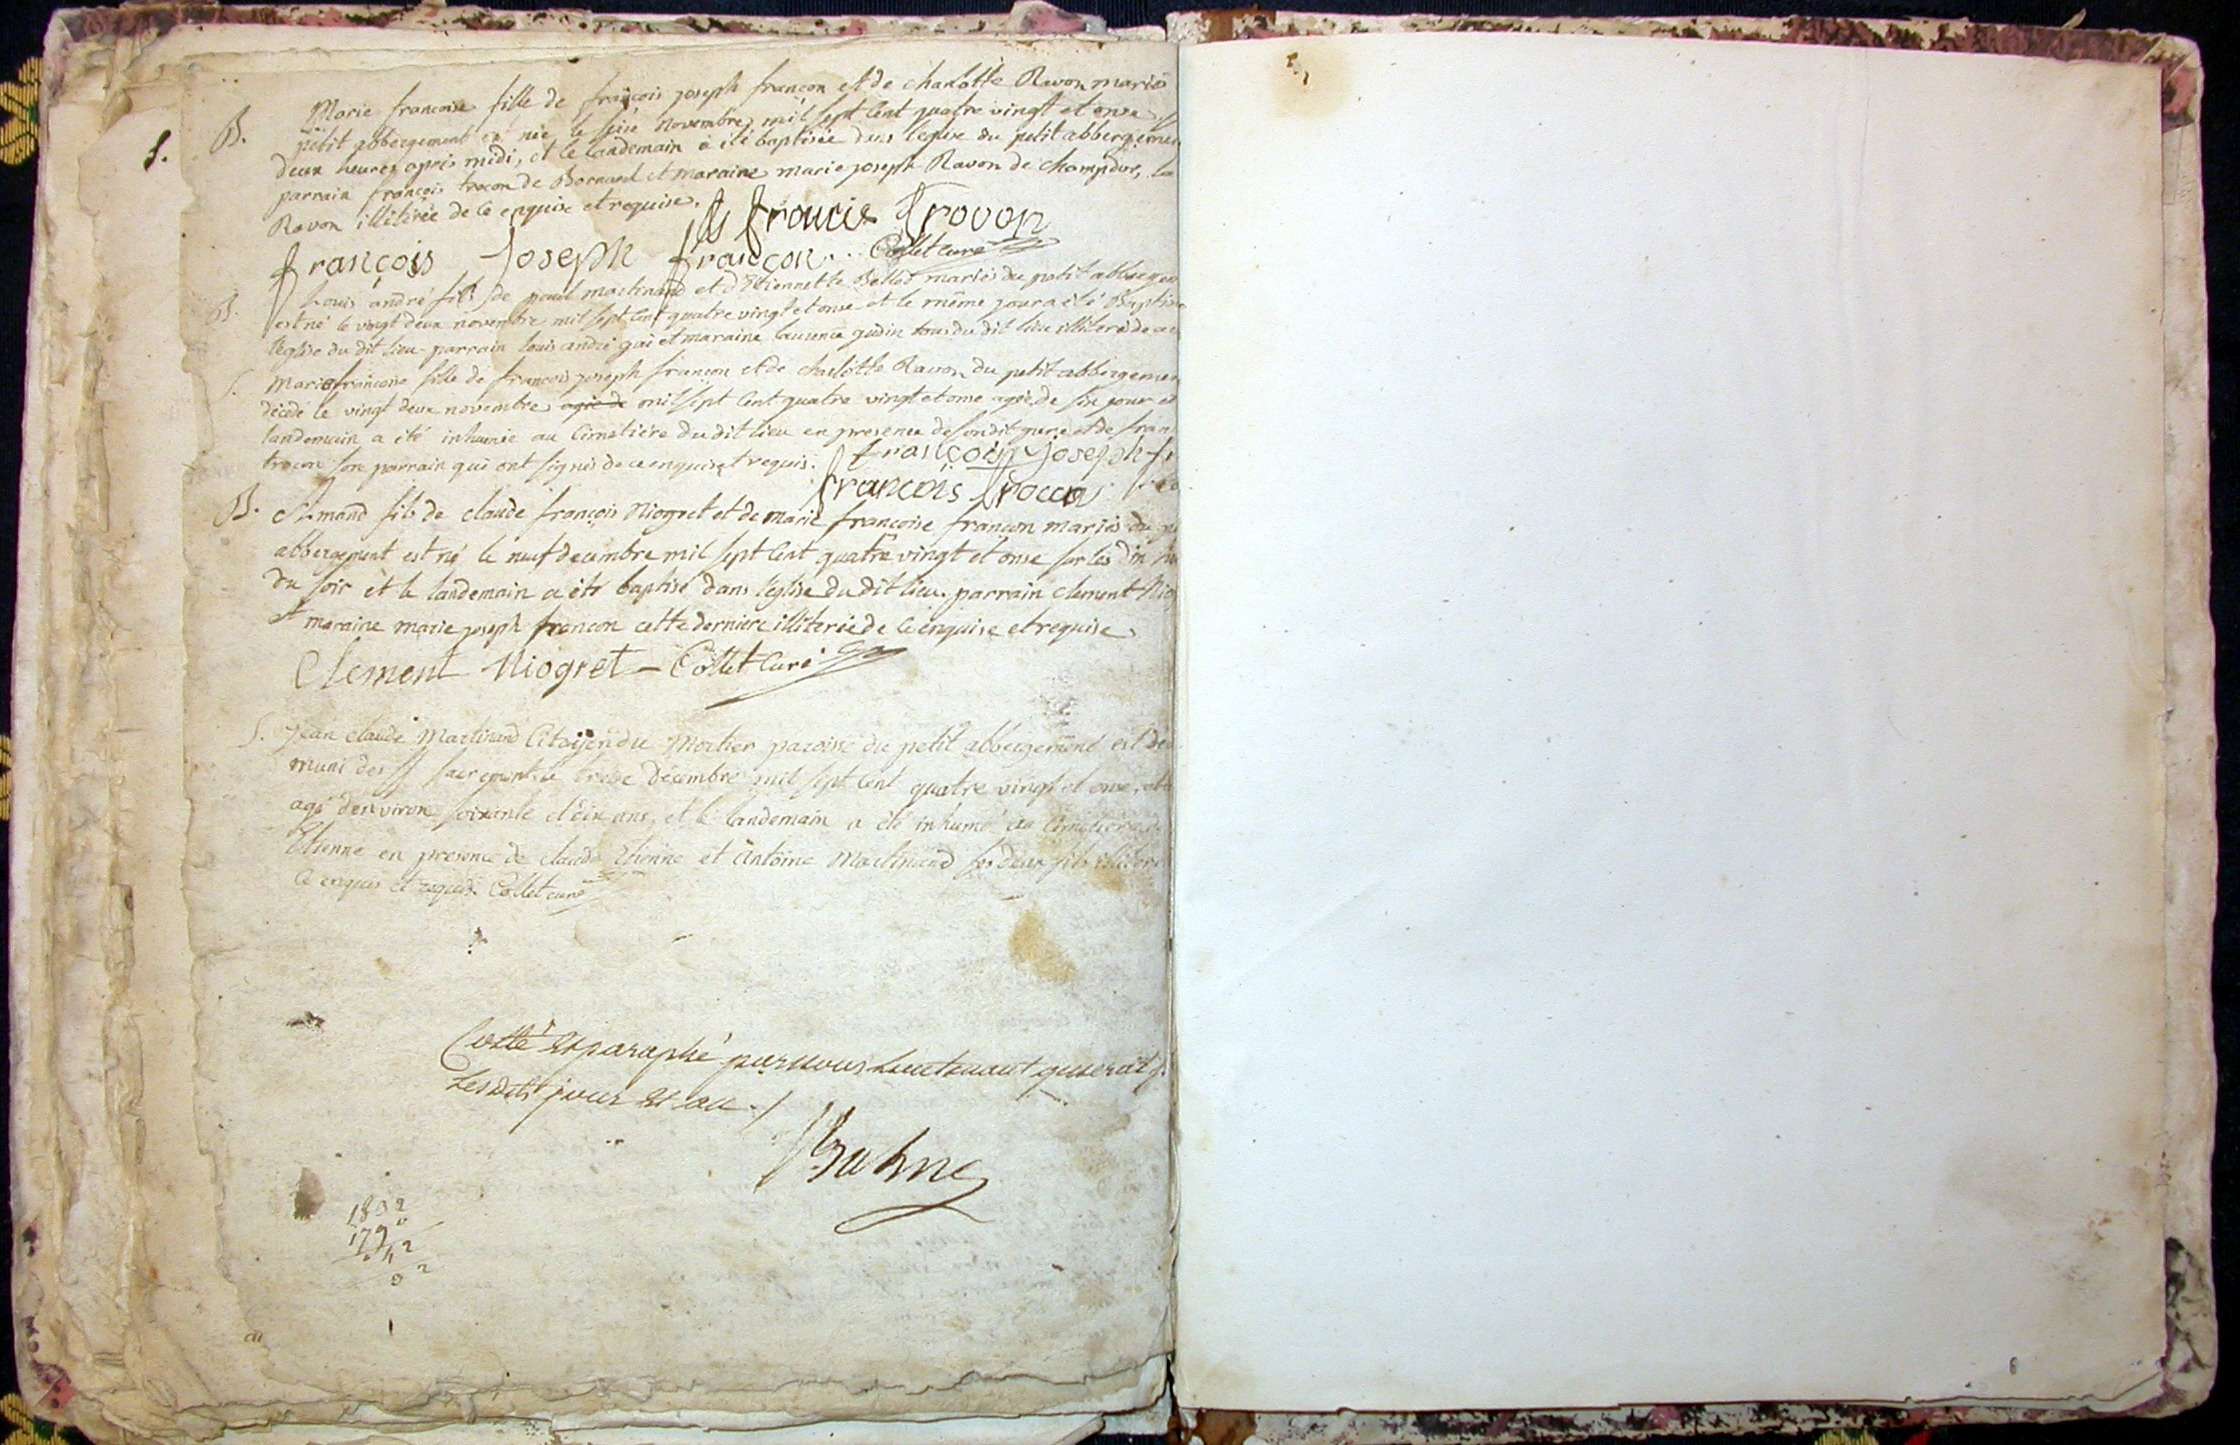 B. Marie francoise fille de françois joseph françon et de charlotte Ravon mariés
petit abbergement est née le seize novembre mil sept Cent quatre vingt et onze
deux heures apres midi, et le landemain a été baptisée dans leglise du petit abbergemen
parrain françois trocon de Bornand et maraine marie joseph Ravon de champdor, la
Ravon illiterée de ce enquise et requise.
francois trocon
françois Joseph françon .. Collet curé
B. Louis andré fils de paul martinand et d'Etiennette Bellod mariés du petit abbergem
est né le vingt deux novembre mil sept Cent quatre vingt et onse et le même jour a été Baptisé
leglise du dit lieu parrain louis andré gai et maraine laurence gudin tous du dit lieu illiteré de ce
S. Marie francoise fille de francois joseph françon et de charlotte Ravon du petit abbergemen
décedé le vingt deux novembre agée de mil sept Cent quatre vingt et onse agée de six jour et
landemain a été inhumée au Cimetiére du dit lieu en presence de son dit pere et de fran
trocon son parrain qui ont signés de ce enquis et requis. françois Joseph fr
françois trocon
B. Armand fils de claude françois Niogret et de marie francoise françon mariés du p
abbergement est né le neuf decembre mil sept Cent quatre vingt et onse sur les dix he
du soir et le landemain a été baptisé dans leglise du dit lieu. parrain clement Nio
et maraine marie joseph françon cette derniere illiterée de ce enquise et requise
Clement Niogret - Collet Curé
S. Jean claude Martinand Citoijen du Mortier paroisse du petit abbergement est dé
muni des ss sacrements le treize décembre mil sept Cent quatre vingt et onse,
agé d'environ soixante et dix ans, et le landemain a été inhumé au Cimetiere
Etienne en presence de claude Etienne et Antoine Martinand ses deux fils illitere
ce enquis et requis. Collet curé
Cotté et paraphé par nous Lieutenant general
Lesdits jour et an ./
1802
1790